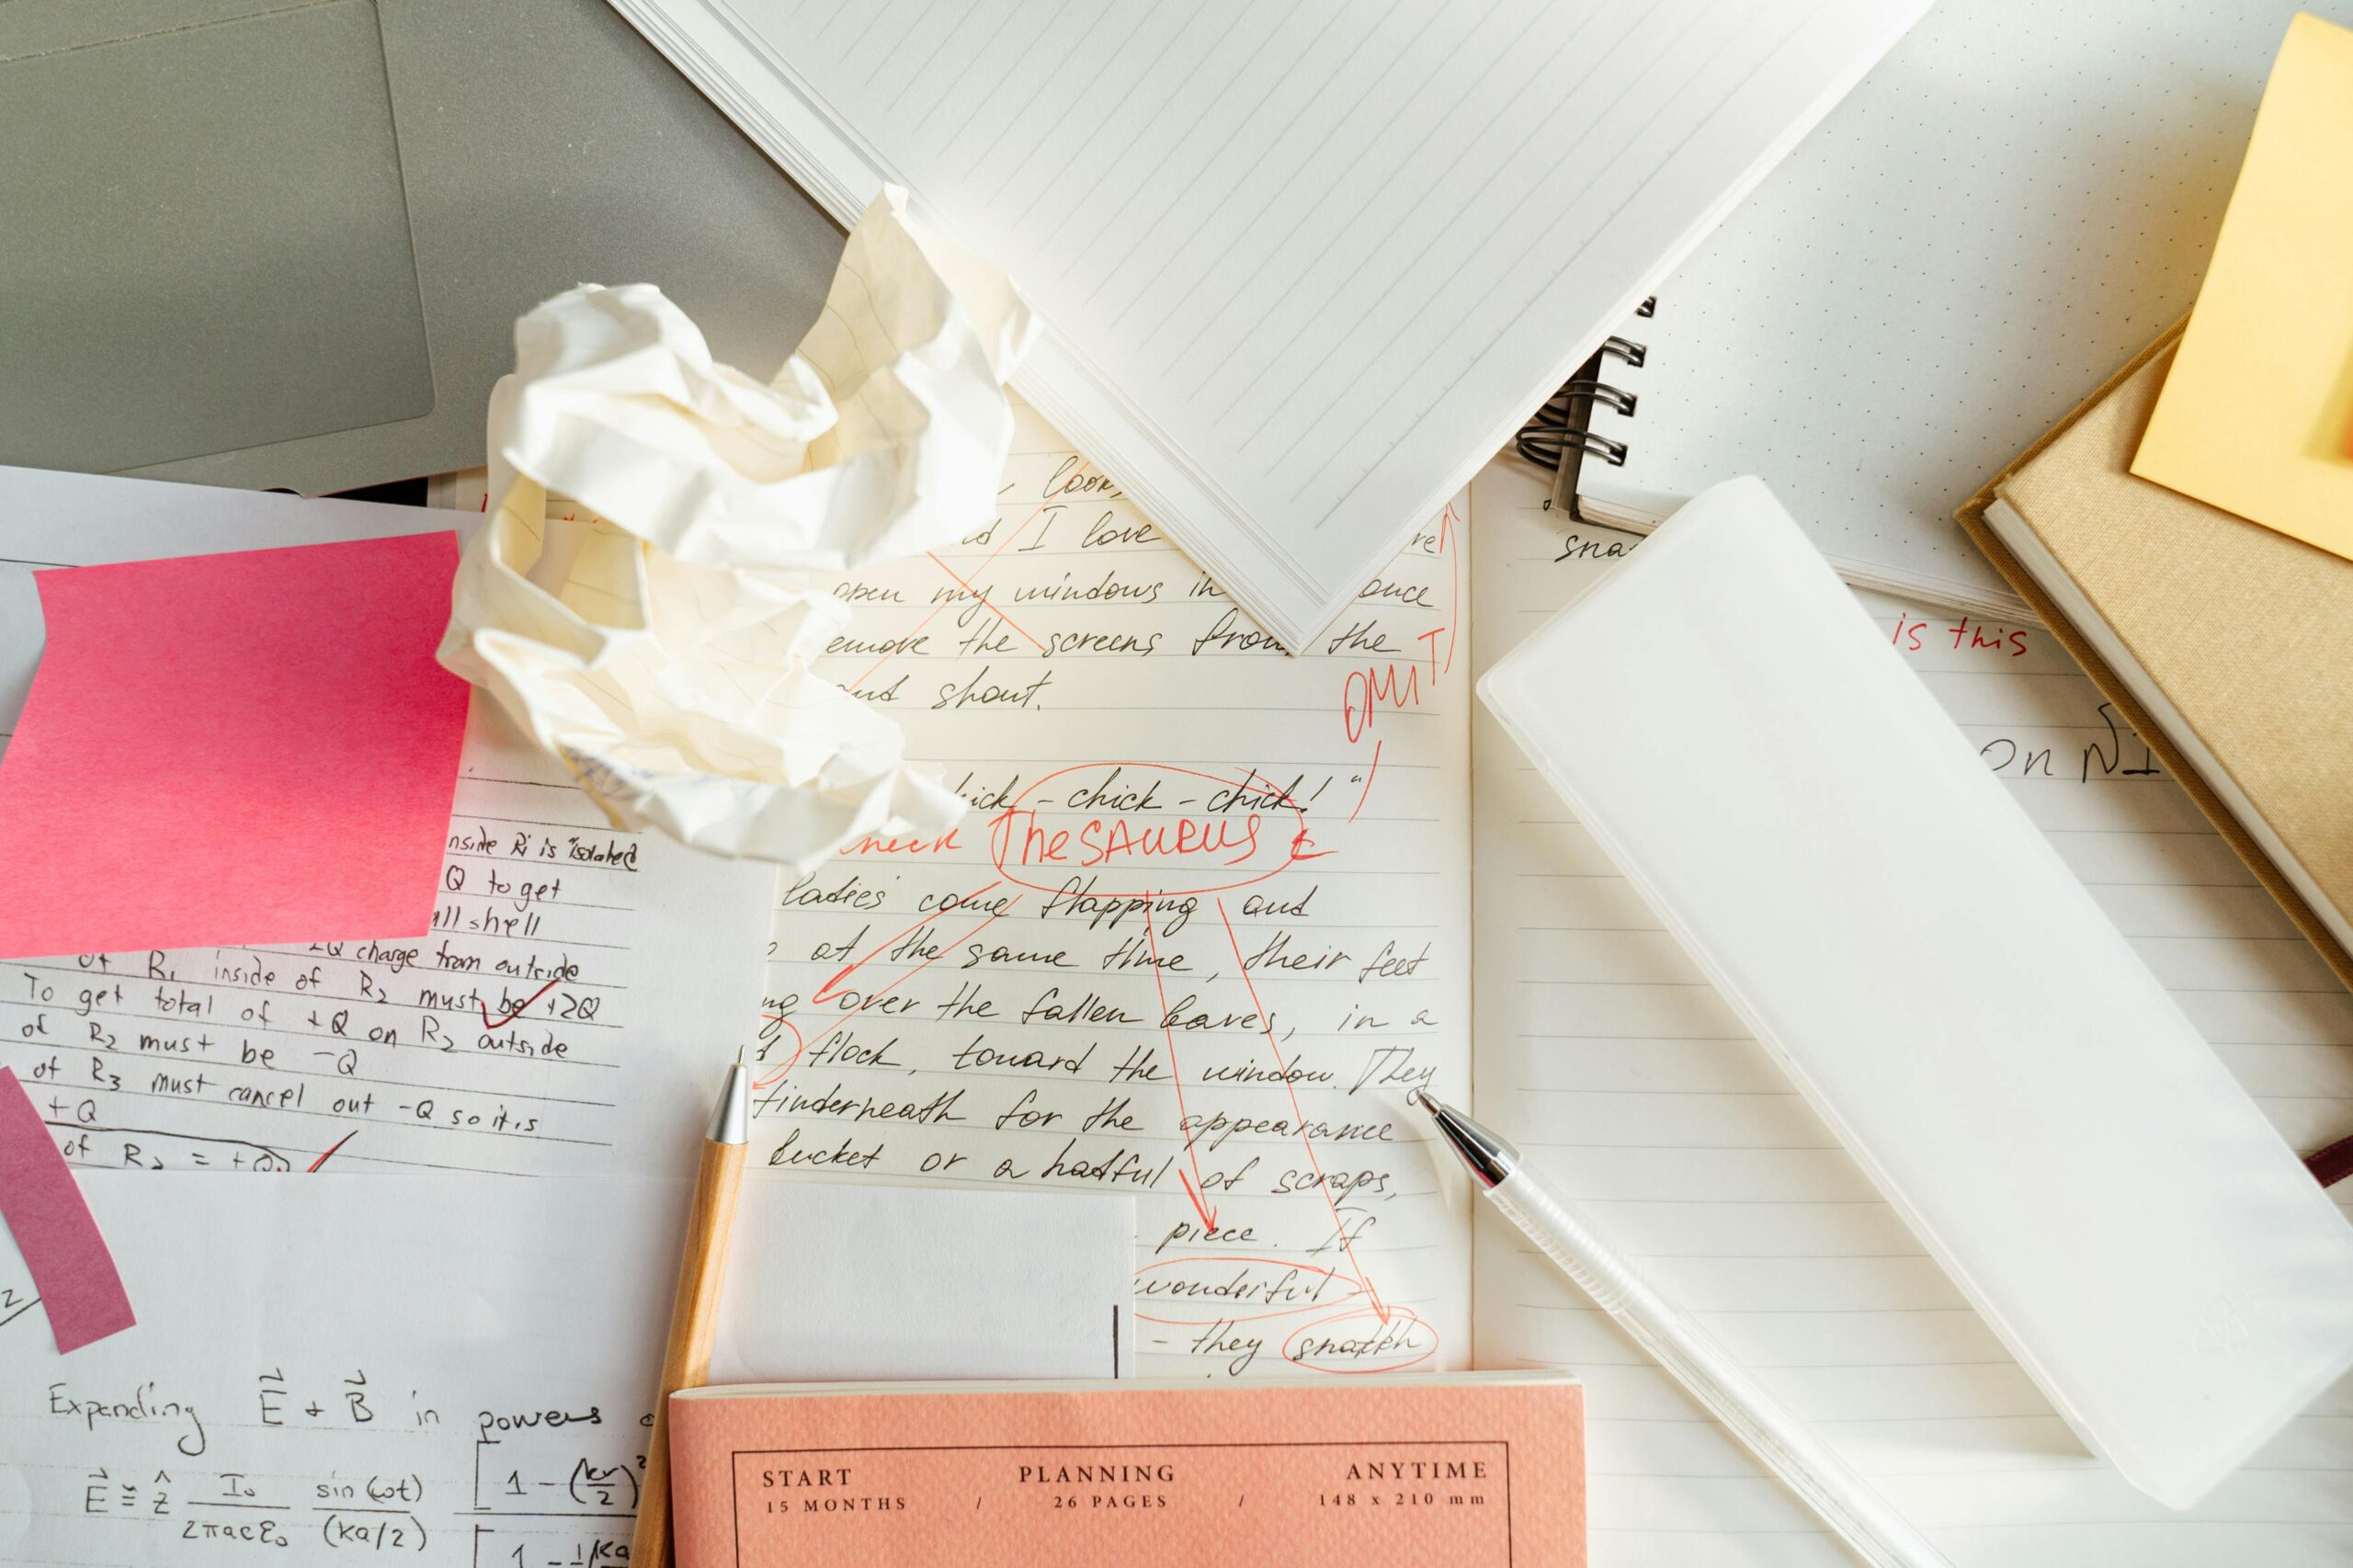 look,
I love
open my windows in
once
remove the screens from the
and shout.
OMIT
chick - chick!"
check TheSAURUS
ladies come flapping and
at the same time, their feet
over the fallen leaves, in a
flock, toward the window. They
underneath for the appearance
bucket or a hatful of scraps,
piece. If
wonderful
- they snatch
sna
is this
on
nside Ri is "isolated
Q to get
shell
2Q charge from outside
of R1 inside of R2 must be +2Q
To get total of +Q on R2 outside
of R2 must be -Q
of R3 must cancel out -Q so it is
+Q
of R2 = +Q
2
Expanding E + B in powers
E ≅ ẑ I₀/2πacε₀ sin(ωt)/(ka/2) [1 - (kr/2)²
[1 - 1/
START PLANNING ANYTIME
15 MONTHS / 26 PAGES / 148 x 210 mm